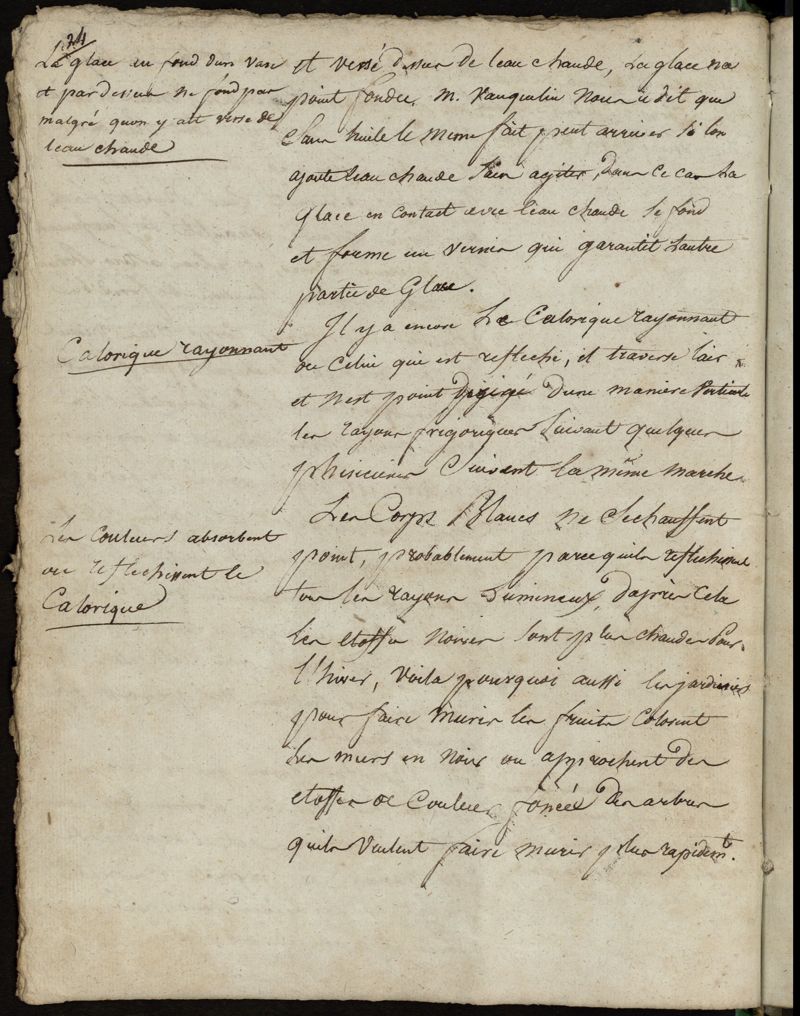 24
La glace en fond dun vase
et par dessus ne fond pas
malgré quon y ait versé de
leau chaude
et versé dessus de leau chaude, La glace na
point fondue. M. Vauquelin nous a dit que
Sans huile le même fait peut arriver si lon
ajoute leau chaude sans agiter, dans ce cas La
glace en contact avec leau chaude se fond
et forme un vernis qui garantit Lautre
partie de Glace.
Calorique rayonnant
Il y a encore Le Calorique rayonnant
ou Celui qui est reflechi, il traverse lair
et nest point dirigé dune manière
les rayons frigoriques suivant quelques
phisiciens suivent la même marche
Les couleurs absorbent
ou reflechissent le
Calorique
Les Corps Blancs ne Sechauffent
point, probablement parcequils reflechissent
tous les rayons Lumineux, daprès Cela
les etoffes noires sont plus chaudes Pour
lhiver, Voila pourquoi aussi les jardiniers
pour faire murir les fruits colorent
Les murs en noir ou approchent des
etoffes de Couleur foncée des arbres
quils veulent faire murir plus rapidemt.